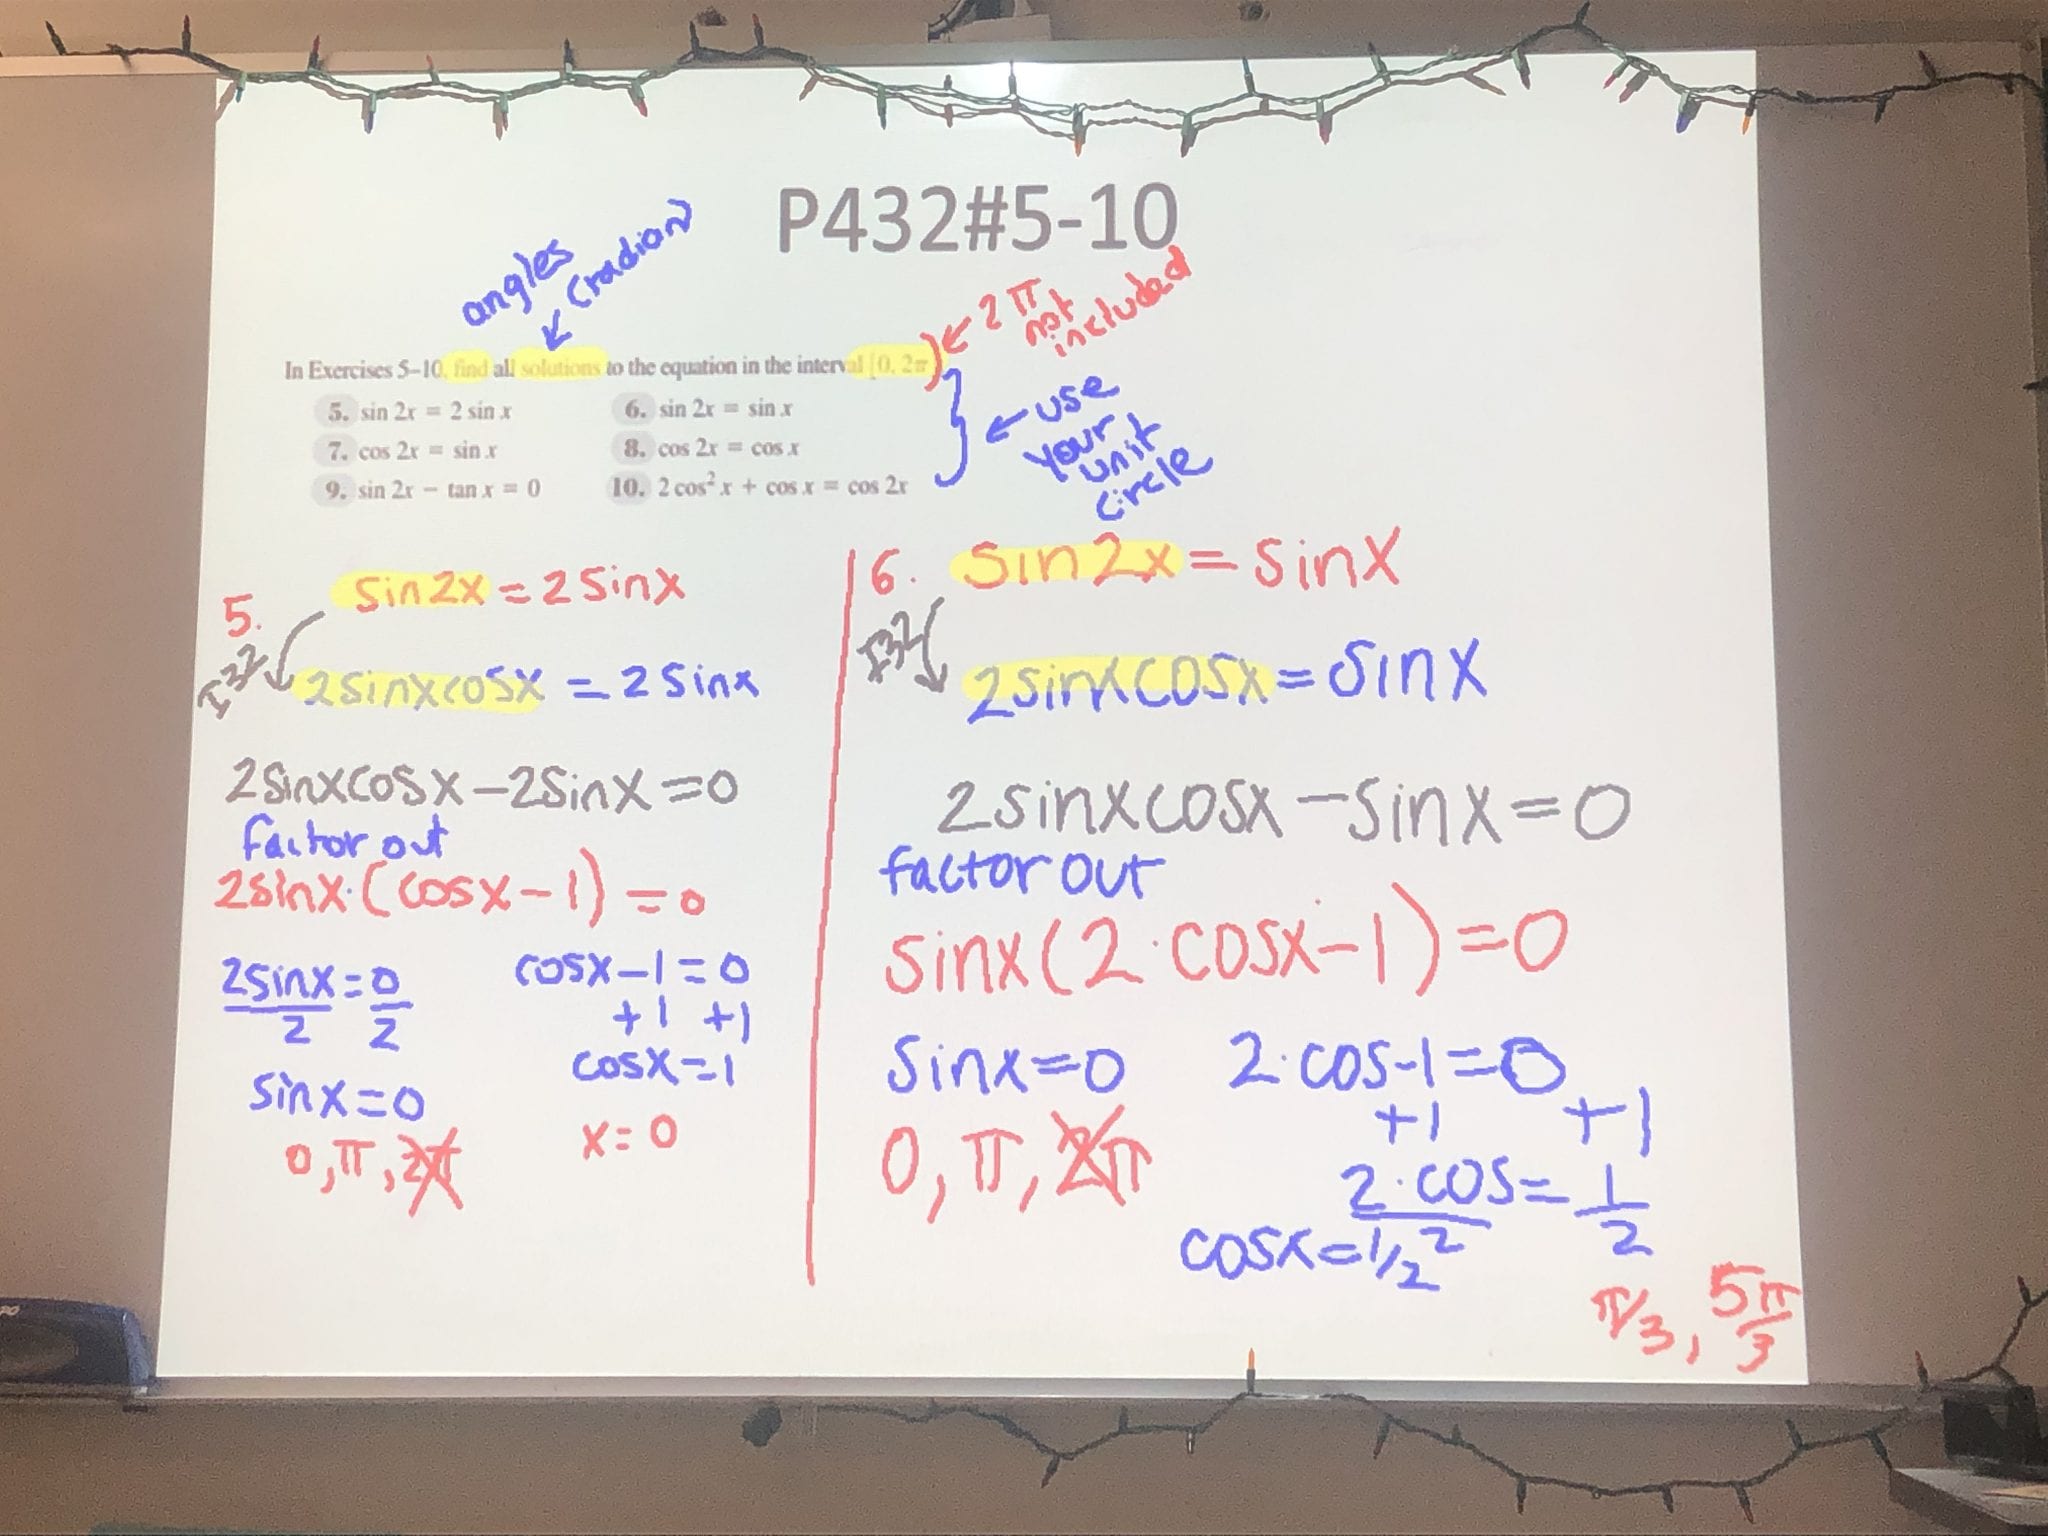 P432#5-10
angles
(radian)
2π
not
included
In Exercises 5–10, find all solutions to the equation in the interval [0, 2π)
5. sin 2x = 2 sin x
6. sin 2x = sin x
7. cos 2x = sin x
8. cos 2x = cos x
9. sin 2x − tan x = 0
10. 2 cos² x + cos x = cos 2x
use
your
unit
circle
5. sin2x = 2sinx
I32
2sinxcosx = 2sinx
2sinxcosx − 2sinx = 0
factor out
2sinx·(cosx − 1) = 0
2sinx = 0
2 2
sinx = 0
0, π, 2π
cosx − 1 = 0
+1 +1
cosx = 1
x = 0
6. sin2x = sinx
I32
2sinxcosx = sinx
2sinxcosx − sinx = 0
factor out
sinx(2·cosx − 1) = 0
sinx = 0
0, π, 2π
2·cos-1 = 0
+1 +1
2·cos = 1
2 2
cosx = 1/2
π/3, 5π/3